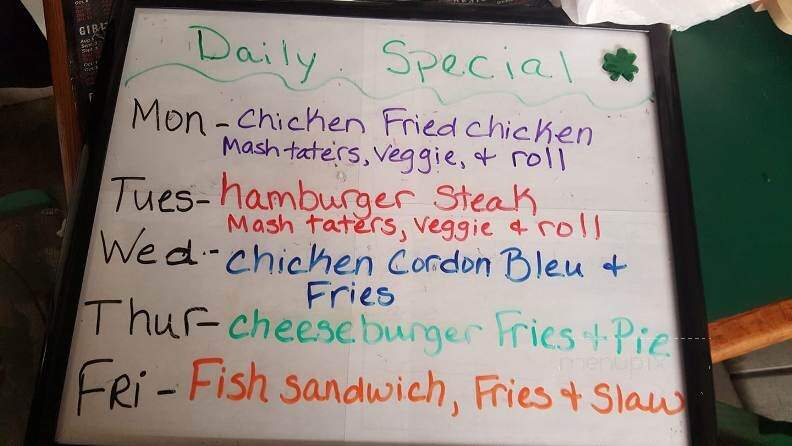 Daily Special
Mon - Chicken Fried Chicken
Mash taters, Veggie, & roll
Tues - hamburger Steak
Mash taters, Veggie & roll
Wed. - Chicken Cordon Bleu &
Fries
Thur - cheeseburger Fries & Pie
menupix
FRi - Fish Sandwich, Fries & Slaw